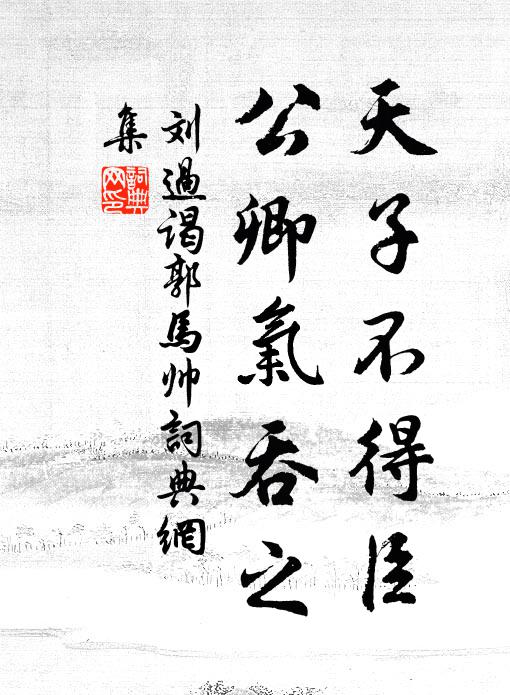 天子不得臣
公卿氣吞之
刘過謁郭馬帅詞典網
集
詞典網印